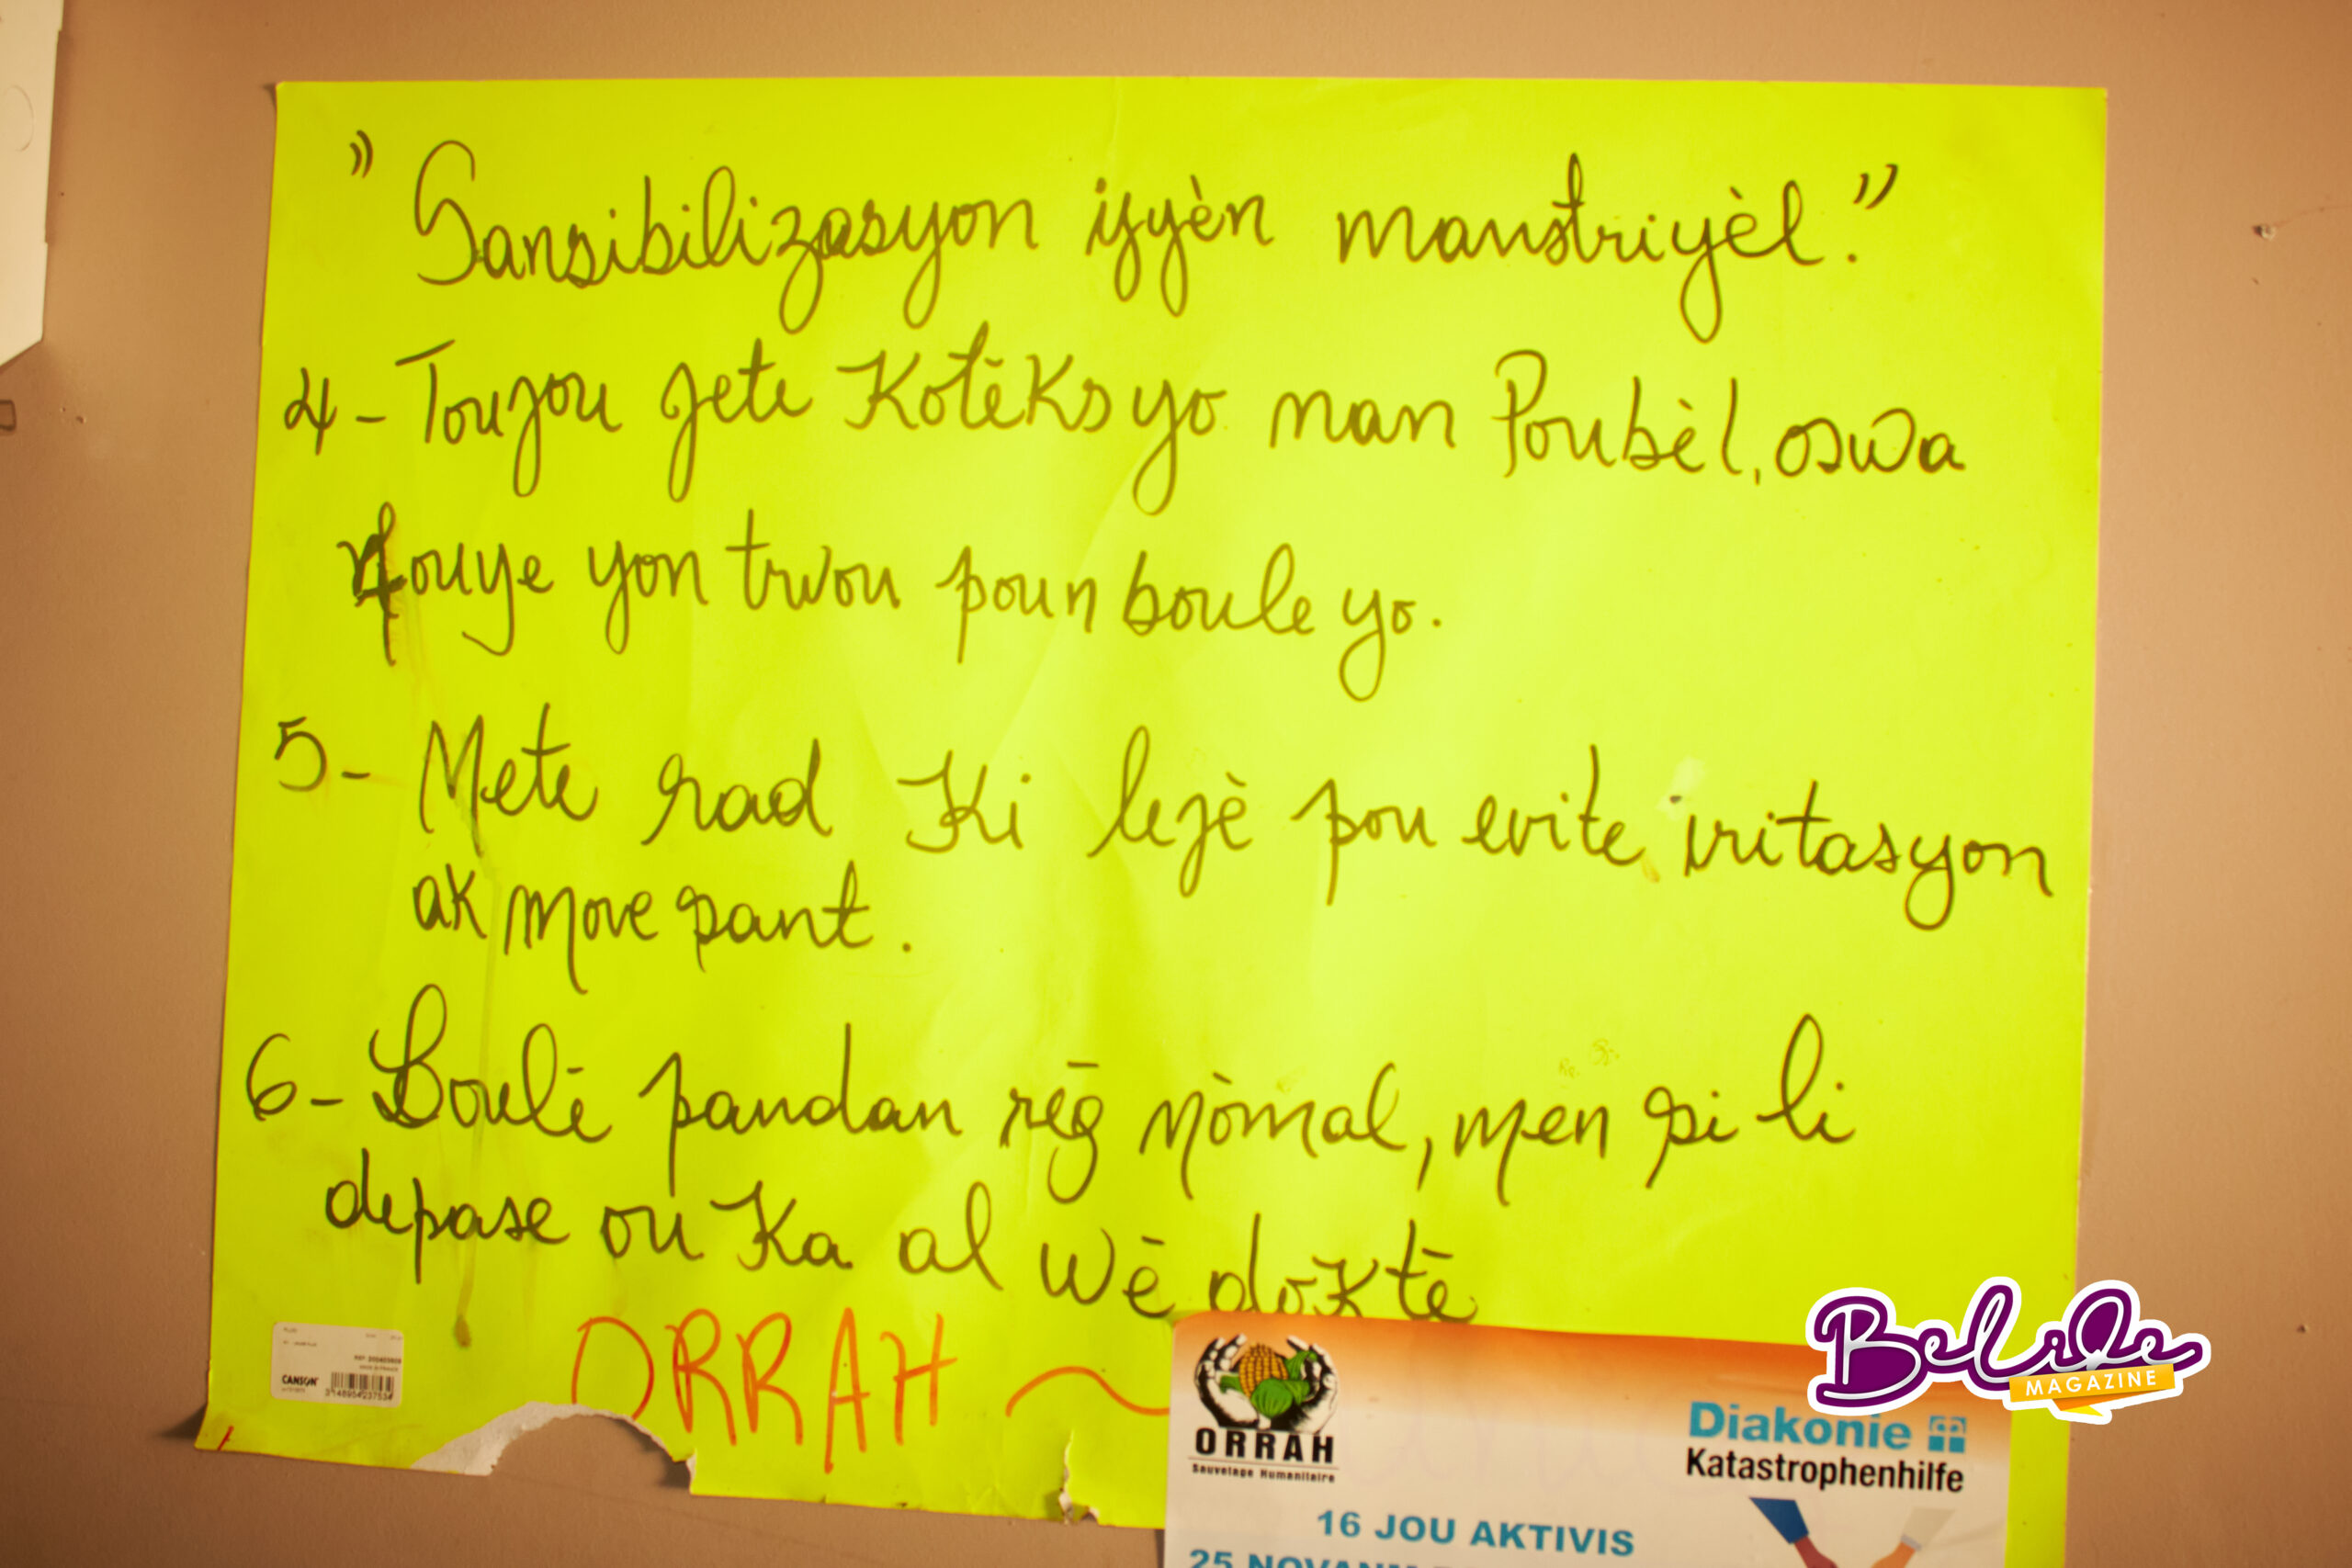 " Sansibilizasyon iyyèn manstriyèl."
4- Toujou jete Kotèks yo nan Poubèl, oswa
fouye yon twou poun boule yo.
5- Mete rad Ki lejè pou evite iritasyon
ak move sant.
6- Doulè pandan règ nòmal, men si li
depase ou Ka al wè doktè
ORRAH ~
CANSON
3 148954 237534
ORRAH
Sauvetage Humanitaire
Diakonie
Katastrophenhilfe
16 JOU AKTIVIS
25 NOVANM
Belide
MAGAZINE